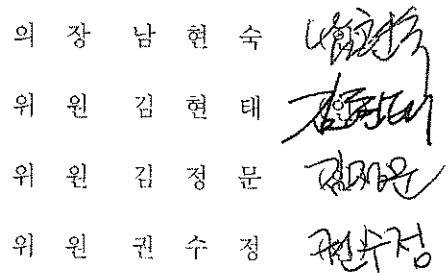 의 장 남 현 숙 남현숙
위 원 김 현 태 김현태
위 원 김 정 문 김정문
위 원 권 수 정 권수정